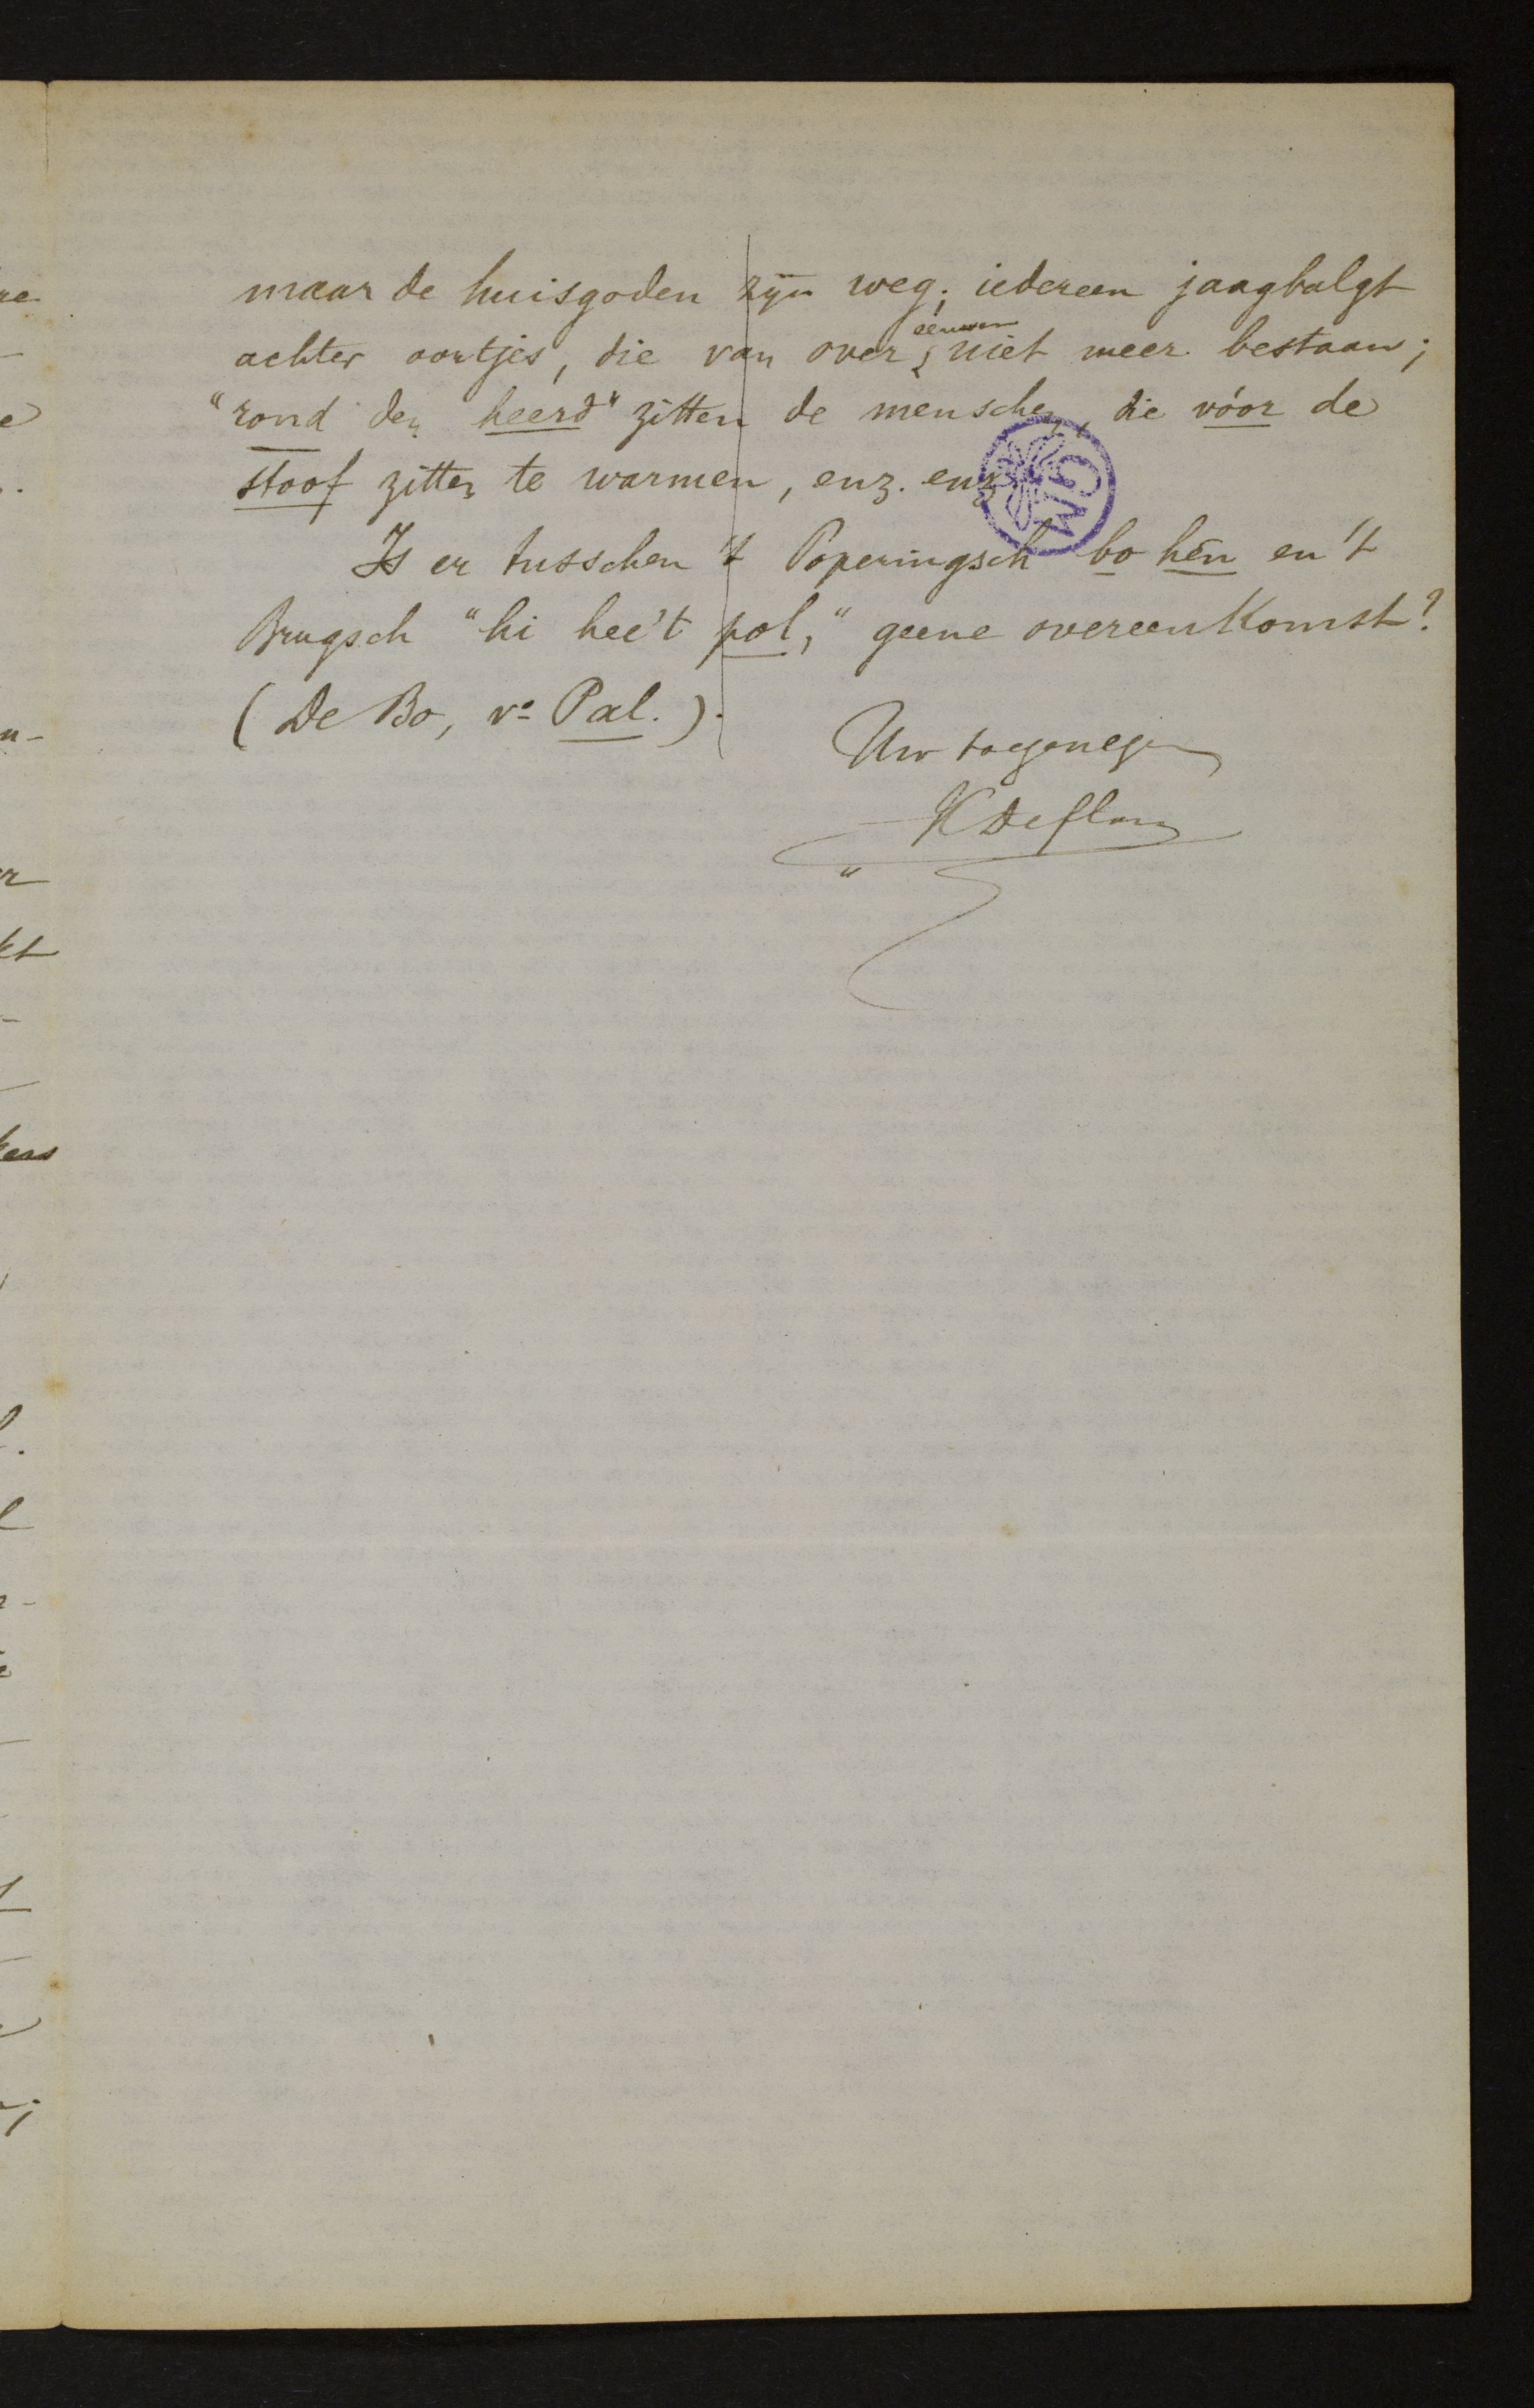 maar de huisgoden zijn weg; iedereen jaagbalgt
achter oortjes, die van over eeuwen niet meer bestaan;
"rond den heerd" zitten de menschen, die vóor de
stoof zitten te warmen, enz. enz
Is er tusschen 't Poperingsch bo hén en 't
Brugsch "hi hee't pol," geene overeenkomst?
(De Bo, vº Pal.).
Uw toegenegen
K Deflou
GM